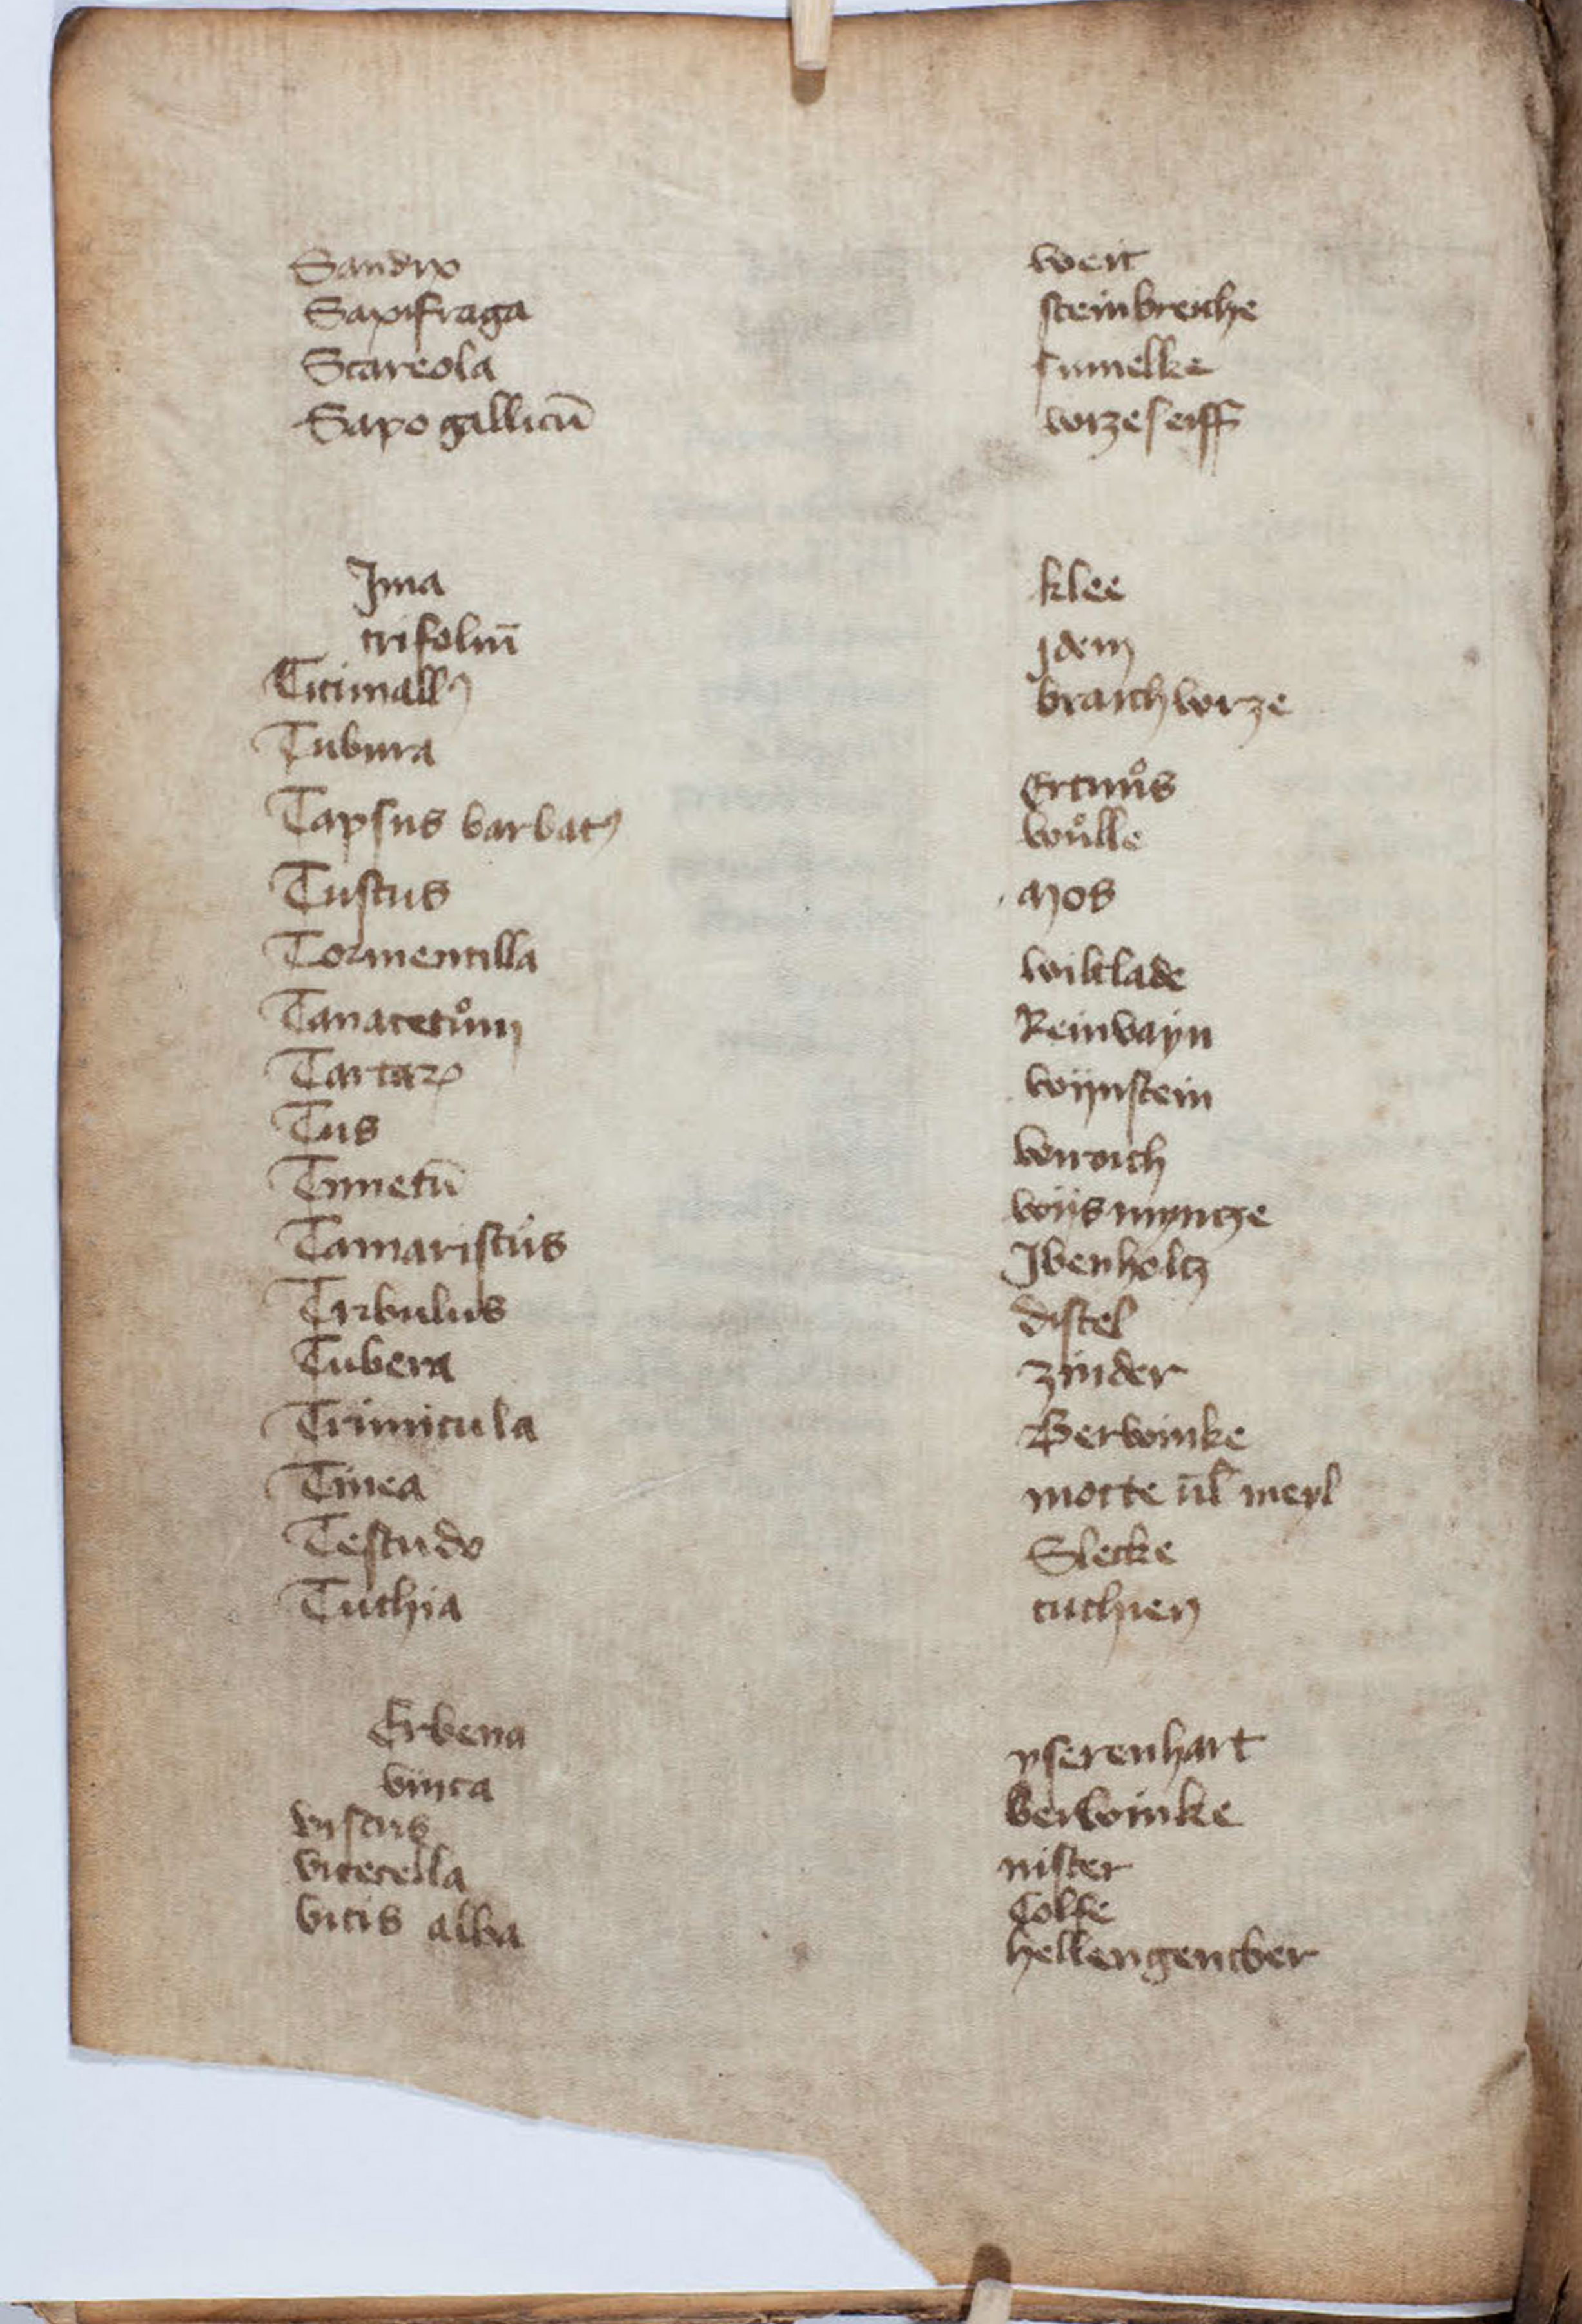 Sandix weit
Saxifraga steinbreche
Scareola
Sapo gallicū wrzeseiff
Jma klee
trifoliū jdem
Titimallꝰ braichwrze
Tubura Ertnuͦs
Tapsus barbatꝰ wuͦlle
Tuscus Mos
Tormentilla wiltlade
Tanacetuͦm Reinvayn
Tartarꝝ wijnstein
Tus wiroich
Timetū wijsmyntze
Tamariscus Jbenholtz
Tribulus distel
Tubera zinder
Trimicula Berwinke
Tinea motte vl̄ meyl
Testudo Slecke
Tuthia tuthien
Erbena yserenhart
vinca Berwinke
viscus mister
viticella Colfe
vitis alba hellengentber